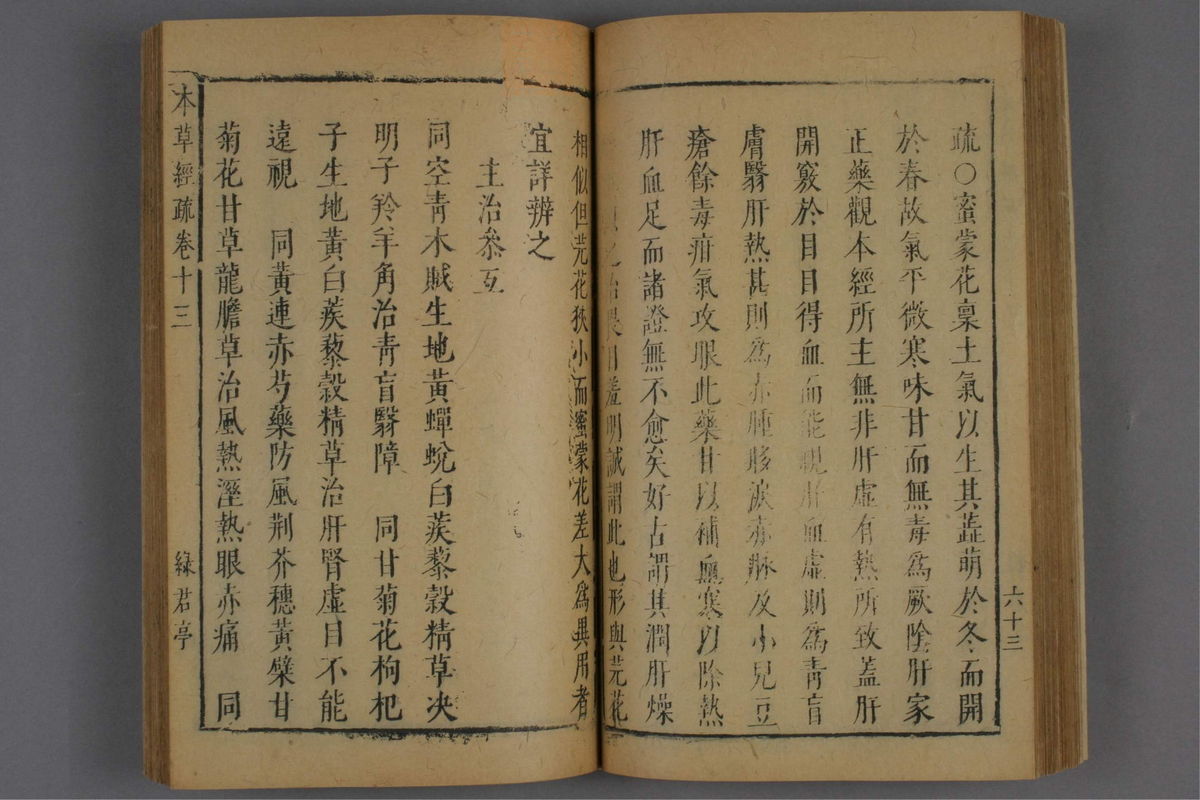 疏○蜜蒙花稟土氣以生其蕋萌於冬而開
於春故氣平微寒味甘而無毒爲厥陰肝家
正藥觀本經所主無非肝虛有熱所致蓋肝
開竅於目目得血而能視肝血虛則爲青盲
膚翳肝熱甚則爲赤腫眵淚赤脉及小兒豆
瘡餘毒疳氣攻眼此藥甘以補血寒以除熱
肝血足而諸證無不愈矣好古謂其潤肝燥
之治畏日羞明誠謂此也形與芫花
相似但芫花狹小而蜜蒙花差大爲異用者
宜詳辨之
主治叅互
同空青木賊生地黃蟬蛻白蒺藜穀精草决
明子羚羊角治青盲翳障 同甘菊花枸杞
子生地黃白蒺藜穀精草治肝腎虛目不能
遠視 同黃連赤芍藥防風荆芥穗黃檗甘
菊花甘草龍膽草治風熱溼熱眼赤痛 同
六十三
本草經疏卷十三
綠君亭